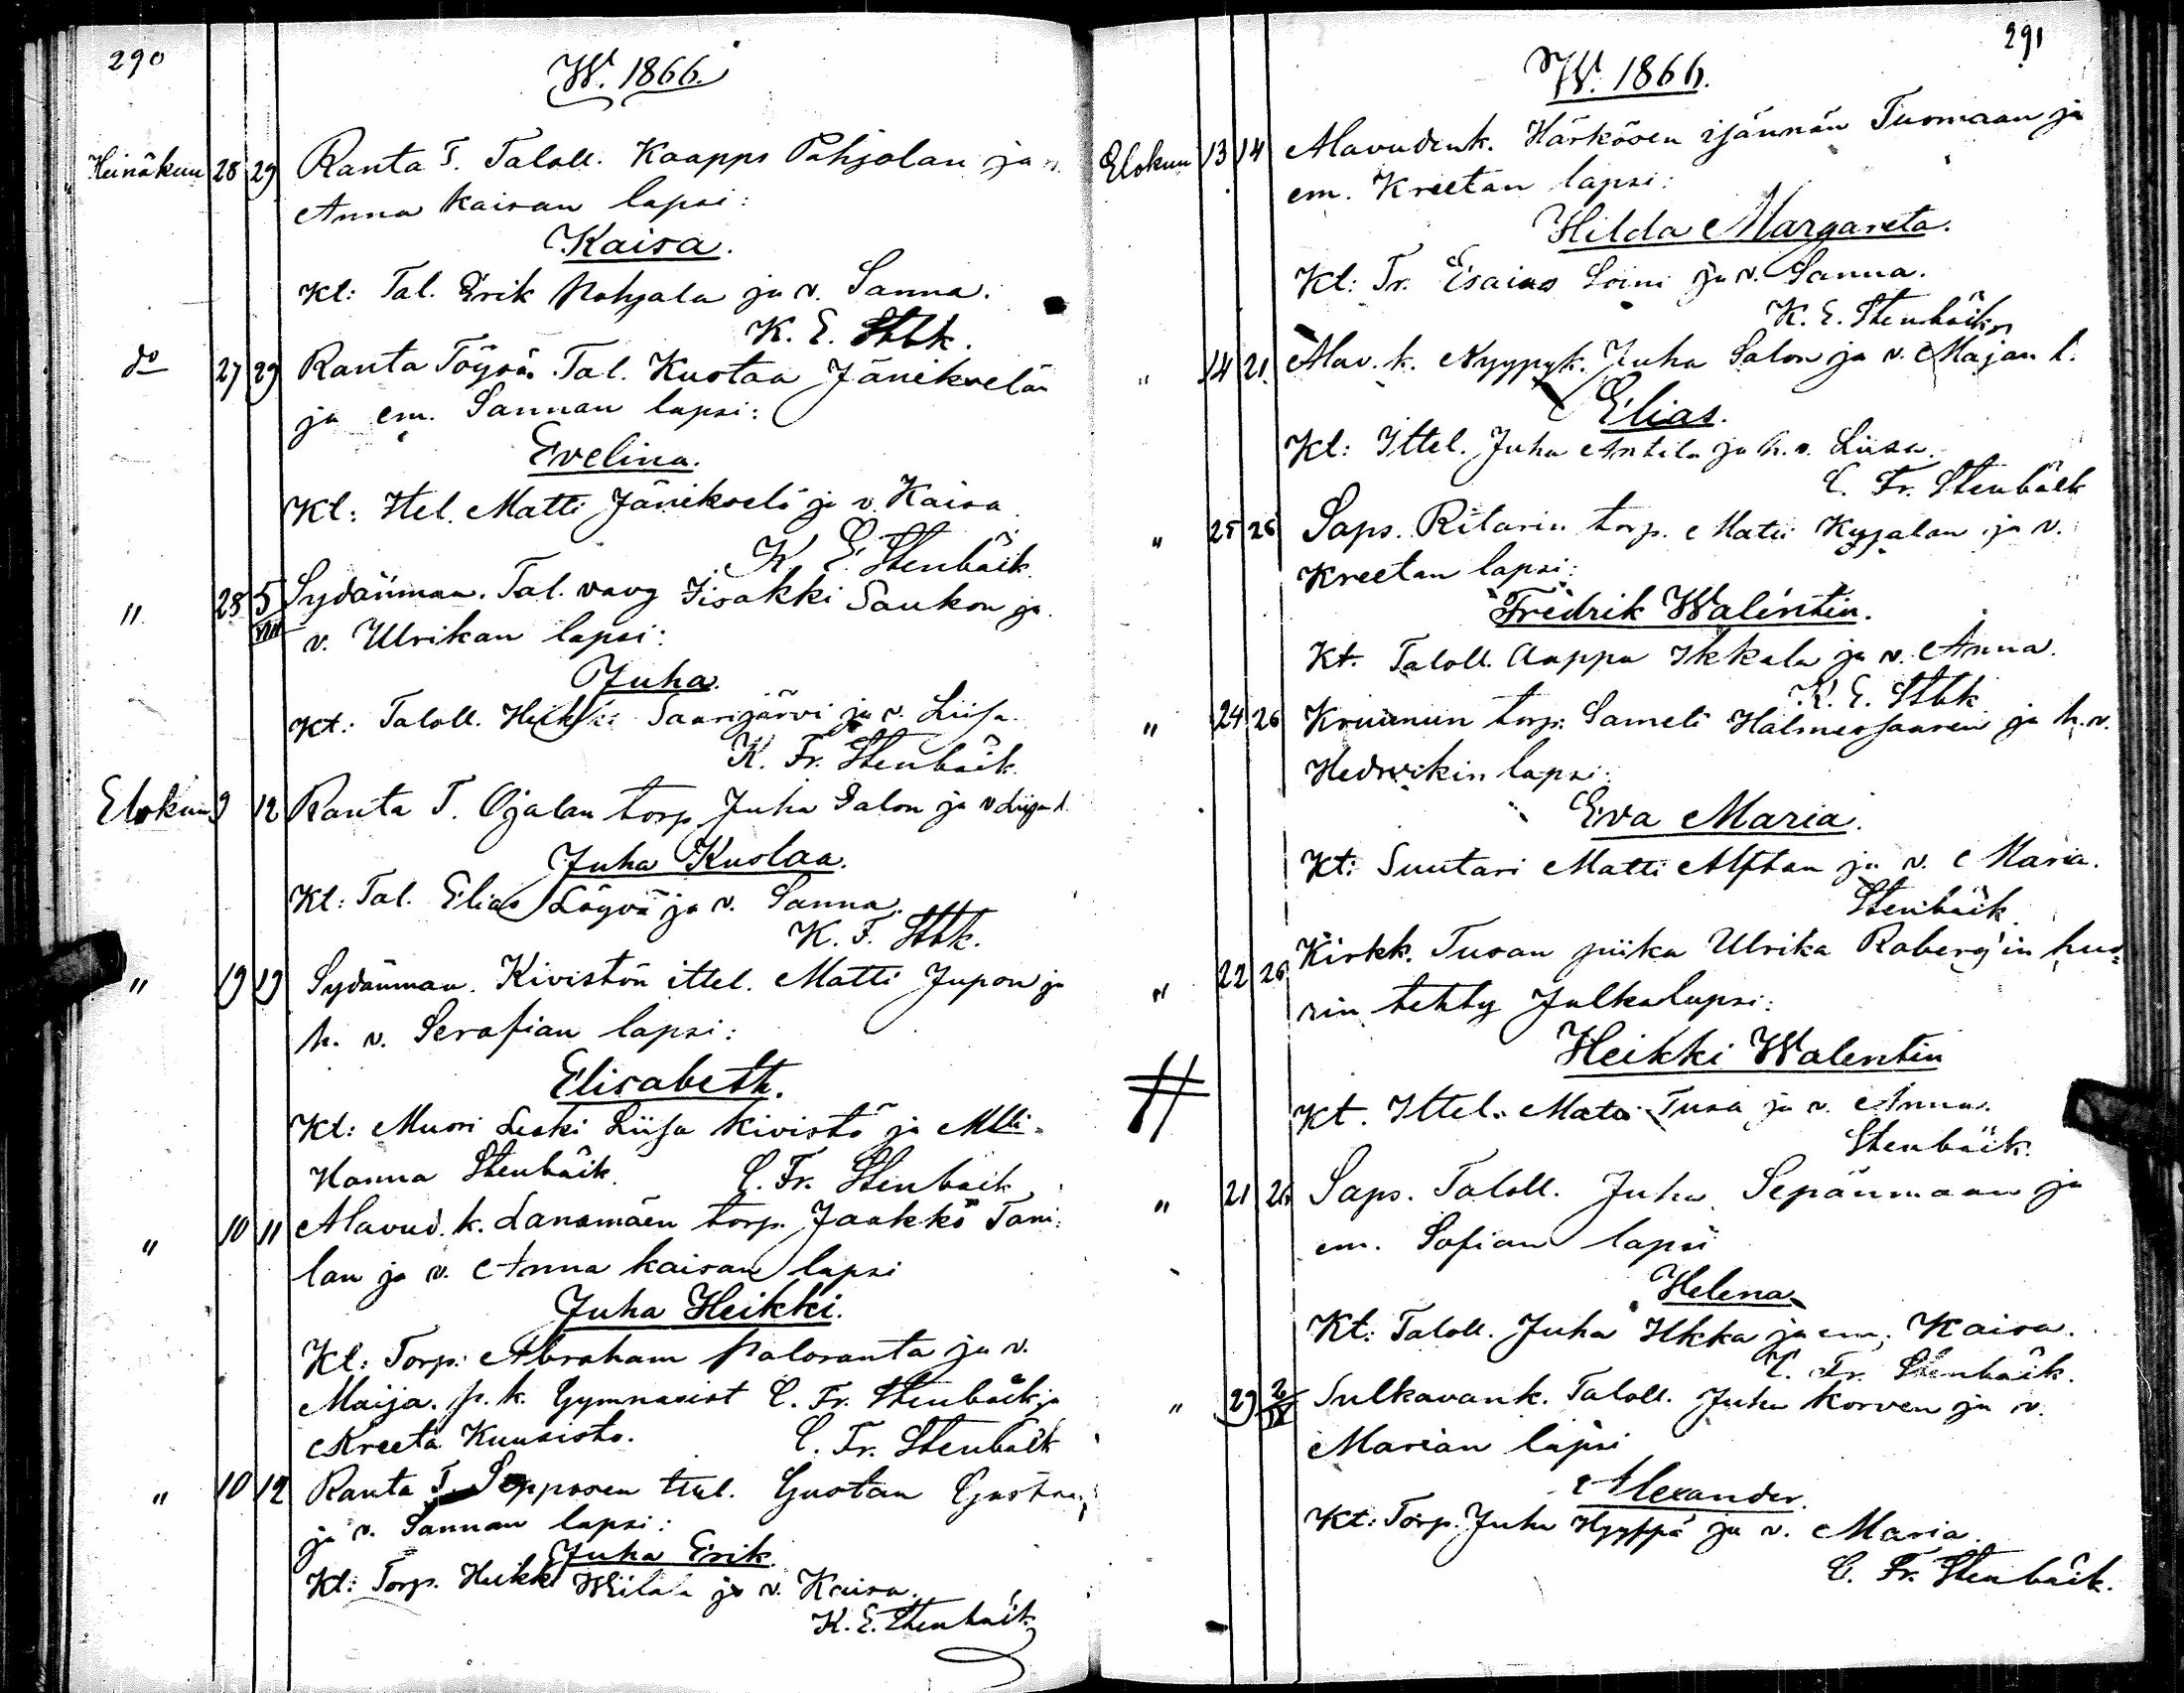 290
W. 1866.
Heinäkuu 28 29 Ranta T. Taloll. Kaappo Pohjalan ja v.
Anna Kaisan lapsi:
Kaisa.
Kt: Tal. Erik Pohjala ja v. Sanna.
K. E. Stbk.
do 27 29 Ranta Töysä. Tal. Kustaa Jänikselän
ja em. Sannan lapsi:
Evelina.
Kt: Itel. Matti Jänikselä ja v. Kaisa
K. E. Stenbäck
" 28 5/VIII Sydänmaa. Tal. vävy Iisakki Saukon ja
v. Ulrikan lapsi:
Juha.
Kt: Taloll. Heikki Saarijärvi ja v. Liisa.
K. Fr. Stenbäck.
Elokuu 9 12 Ranta T. Ojalan torp. Juha Salon ja v Liisan l.
Juha Kustaa.
Kt: Tal. Elias Löyvä ja v. Sanna.
K. F. Stbk.
" 19 19 Sydänmaa. Kivistön ittel. Matti Jupon ja
h. v. Serafian lapsi:
Elisabeth.
Kt: Muori Leski Liisa Kivistö ja Mlli
Hanna Stenbäck. C. Fr. Stenbäck
" 10 11 Alavud. k. Lansmäen torp. Jaakko Tani-
lan ja v. Anna Kaisan lapsi
Juha Heikki.
Kt: Torp. Abraham Paloranta ja v.
Maija. p. k. Gymnasist C. Fr. Stenbäck ja
Kreeta Kuusisto. C. Fr. Stenbäck
" 10 12 Ranta T. Sepposen ittel. Gustaa
ja v. Sannan lapsi:
Juha Erik.
Kt: Torp. Heikki Wiitala ja v. Kaisa.
K. E. Stenbäck
291
W. 1866.
Elokuu 13 14 Alavudenk. Härkösen isännän Tuomaan ja
em. Kreetan lapsi:
Hilda Margareta.
Kt: Tr. Esaias Soini ja v. Sanna.
K. E. Stenbäck
" 14 21. Alav. k. Nyypyk. Juha Salon ja v. Majan l.
Elias.
Kt: Ittel. Juha Antila ja h. v. Liisa.
C. Fr. Stenbäck
" 25 26 Saps. Ritarin torp. Matti Kujalan ja v.
Kreetan lapsi:
Fredrik Walentin.
Kt. Taloll. Aappo Ikkala ja v. Anna.
K. E. Stbk
" 24 26 Kruunun torp. Sameli Halmessaaren ja h. v.
Hedvikin lapsi:
Eva Maria.
Kt: Suutari Matti Alftan ja v. Maria.
Stenbäck
" 22 26 Kirkk. Tusan piika Ulrika Raberg'in huo-
rin tehty Julkalapsi:
Heikki Walentin
Kt. Ittel. Matti Tusa ja v. Anna.
Stenbäck.
" 21 26 Saps. Taloll. Juha Sepänmaan ja
em. Sofian lapsi
Helena
Kt: Taloll. Juha Ikka ja em. Kaisa.
C. Fr. Stenbäck.
" 29 2/IX Sulkavank. Taloll. Juha Korven ja v.
Marian lapsi
Alexander.
Kt: Torp. Juha Hyyppä ja v. Maria.
C. Fr. Stenbäck.